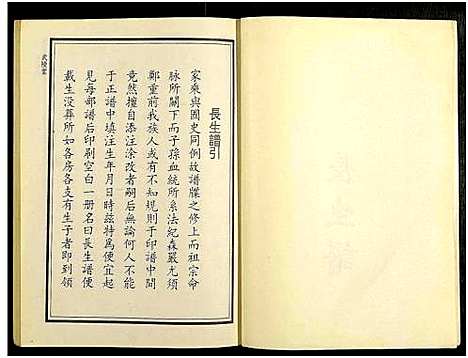 長生譜引
家乘與國史同例故譜牒之修上而祖宗命
脉所關下而子孫血統所系法紀森嚴尤須
鄭重前我族人或有不知規則于印譜中間
竟然擅自添注涂改者嗣后無論何人不能
于正譜中填注生年月日時茲特為便宜起
見每部譜后印刷空白一册名曰長生譜便
載生没葬所如各房各支有生子者即到領
武陵堂